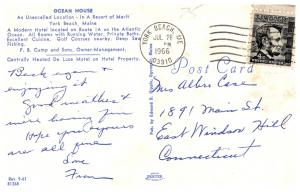 OCEAN HOUSE
An Unexcelled Location - In a Resort of Merit
York Beach, Maine
A Modern Hotel located on Route 1A on the Atlantic
Ocean. All Rooms with Running Water, Private Baths.
Excellent Cuisine. Golf Courses nearby. Deep Sea
Fishing.
F. B. Camp and Sons, Owner-Management.
Centrally Heated De Luxe Motel on Hotel Property.
Back again &
enjoying it.
Good weather &
more having fun
Hope you ayours
are all fine
Love
Fran
Rev. 9-61
81268
YORK BEACH, ME
JUL 28
PM
1966
03910
Post Card
Mrs Albro Case
1891 Main St
East Windsor Hill
Connecticut
DEXTER